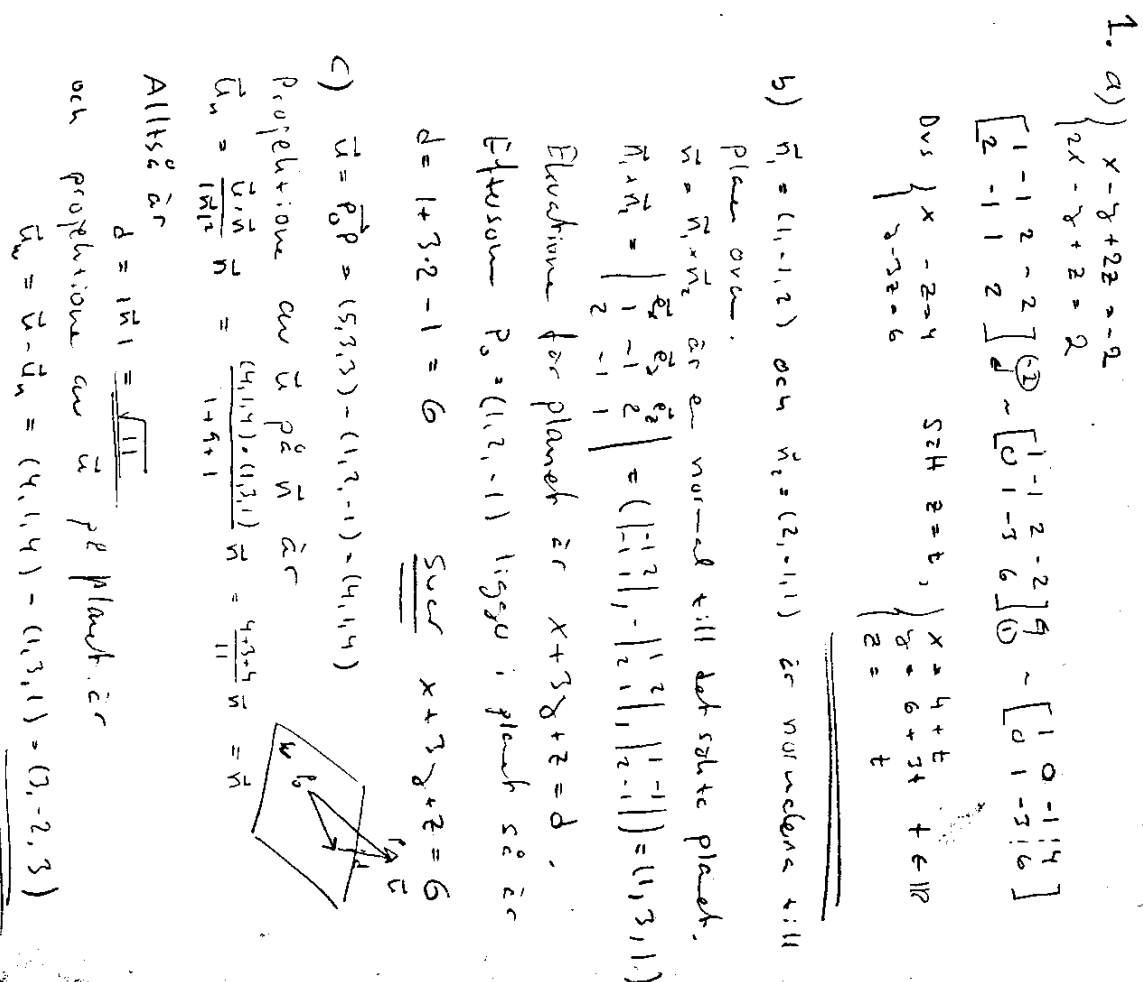 1. a) { x - y + 2z = -2
2x - y + z = 2
[1 -1 2 -2; 2 -1 1 2] (-2) ~ [1 -1 2 -2; 0 1 -3 6] (1) ~ [1 0 -1 | 4; 0 1 -3 | 6]
Dvs { x - z = 4, y - 3z = 6 Sätt z = t, { x = 4 + t, y = 6 + 3t, z = t t ∈ ℝ
b) n̄₁ = (1,-1,2) och n̄₂ = (2,-1,1) är normalerna till
planen ovan.
n̄ = n̄₁×n̄₂ är en normal till det sökta planet.
n̄₁×n̄₂ = |ēx ēy ēz; 1 -1 2; 2 -1 1| = (|-1 2; -1 1|, -|1 2; 2 1|, |1 -1; 2 -1|) = (1,3,1)
Ekvationen för planet är x + 3y + z = d.
Eftersom P₀ = (1,2,-1) ligger i planet så är
d = 1 + 3·2 - 1 = 6 Svar x + 3y + z = 6
c) ū = P₀P = (5,3,3) - (1,2,-1) = (4,1,4)
Projektionen av ū på n̄ är
ūn = (ū·n̄)/|n̄|² n̄ = ((4,1,4)·(1,3,1))/(1+9+1) n̄ = (4+3+4)/11 n̄ = n̄
W P₀ d P ū
Alltså är
d = |n̄| = √11
och projektionen av ū på planet är
ūw = ū - ūn = (4,1,4) - (1,3,1) = (3,-2,3)